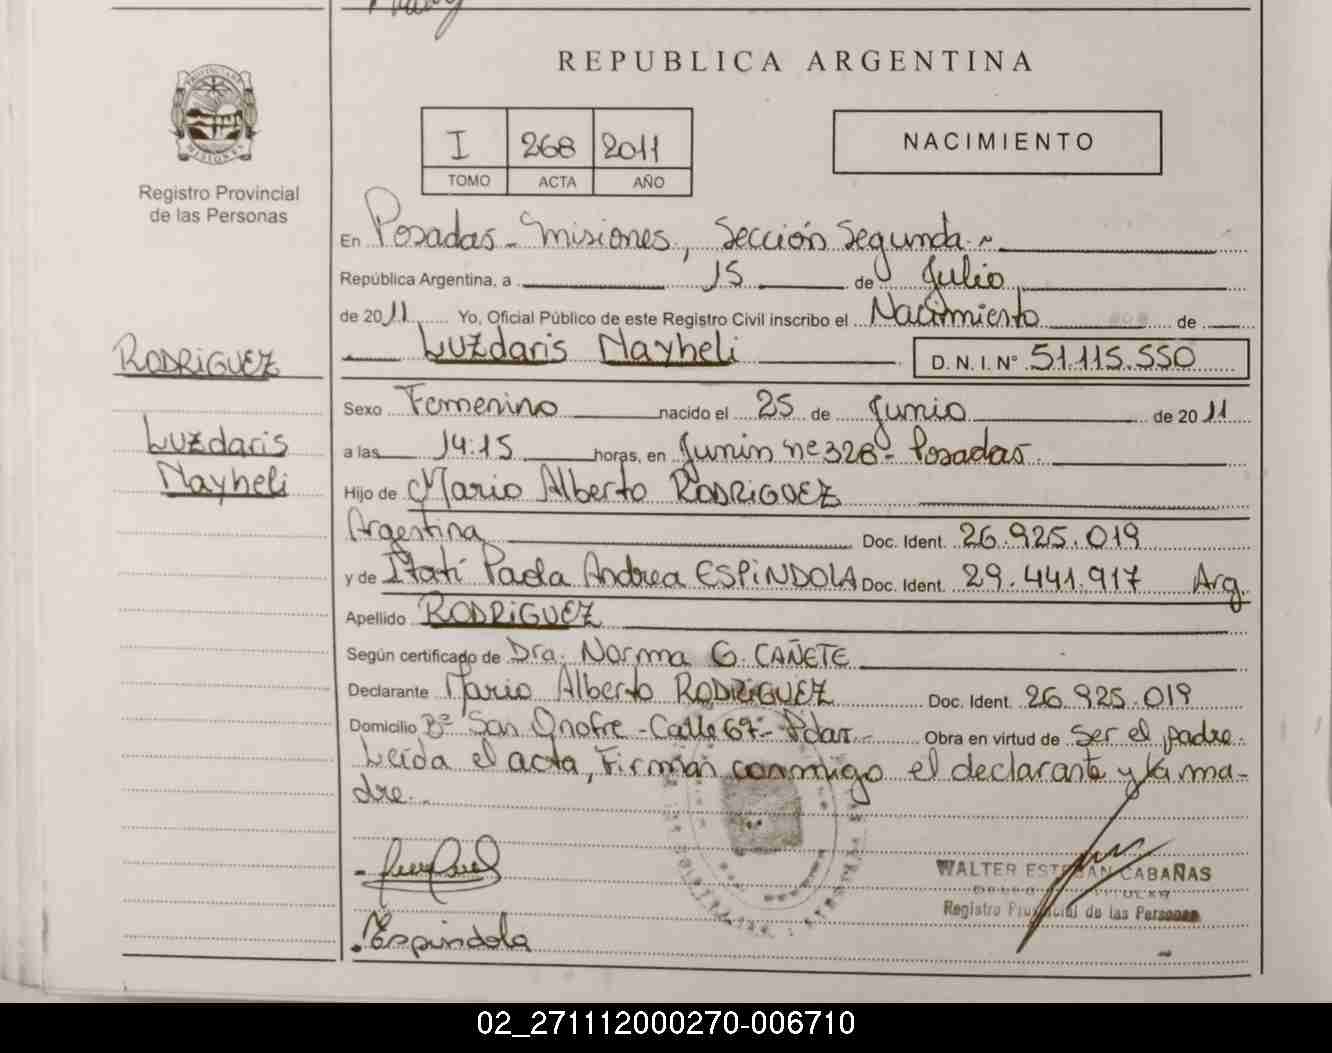 REPUBLICA ARGENTINA
PROVINCIA DE MISIONES
Registro Provincial
de las Personas
I 268 2011
TOMO ACTA AÑO
NACIMIENTO
En Posadas - Misiones, Sección Segunda.~
República Argentina, a 15 de Julio
de 2011 Yo, Oficial Público de este Registro Civil inscribo el Nacimiento de
Luzdaris Nayheli D. N. I. Nº 51.115.550
RODRIGUEZ
Luzdaris
Nayheli
Sexo Femenino nacido el 25 de Junio de 2011
a las 14:15 horas, en Junin nº 328 - Posadas.
Hijo de Mario Alberto RODRIGUEZ
Argentina Doc. Ident. 26.925.019
y de Itatí Paola Andrea ESPINDOLA Doc. Ident. 29.441.917 Arg.
Apellido RODRIGUEZ
Según certificado de Dra. Norma G. CAÑETE
Declarante Mario Alberto RODRIGUEZ Doc. Ident. 26.925.019
Domicilio Bº San Onofre - Calle 67 - Pdas.- Obra en virtud de Ser el padre.
Leída el acta, Firman conmigo el declarante y la ma-
dre.
WALTER ESTEBAN CABAÑAS
Registro Provincial de las Personas
Espindola
02_271112000270-006710